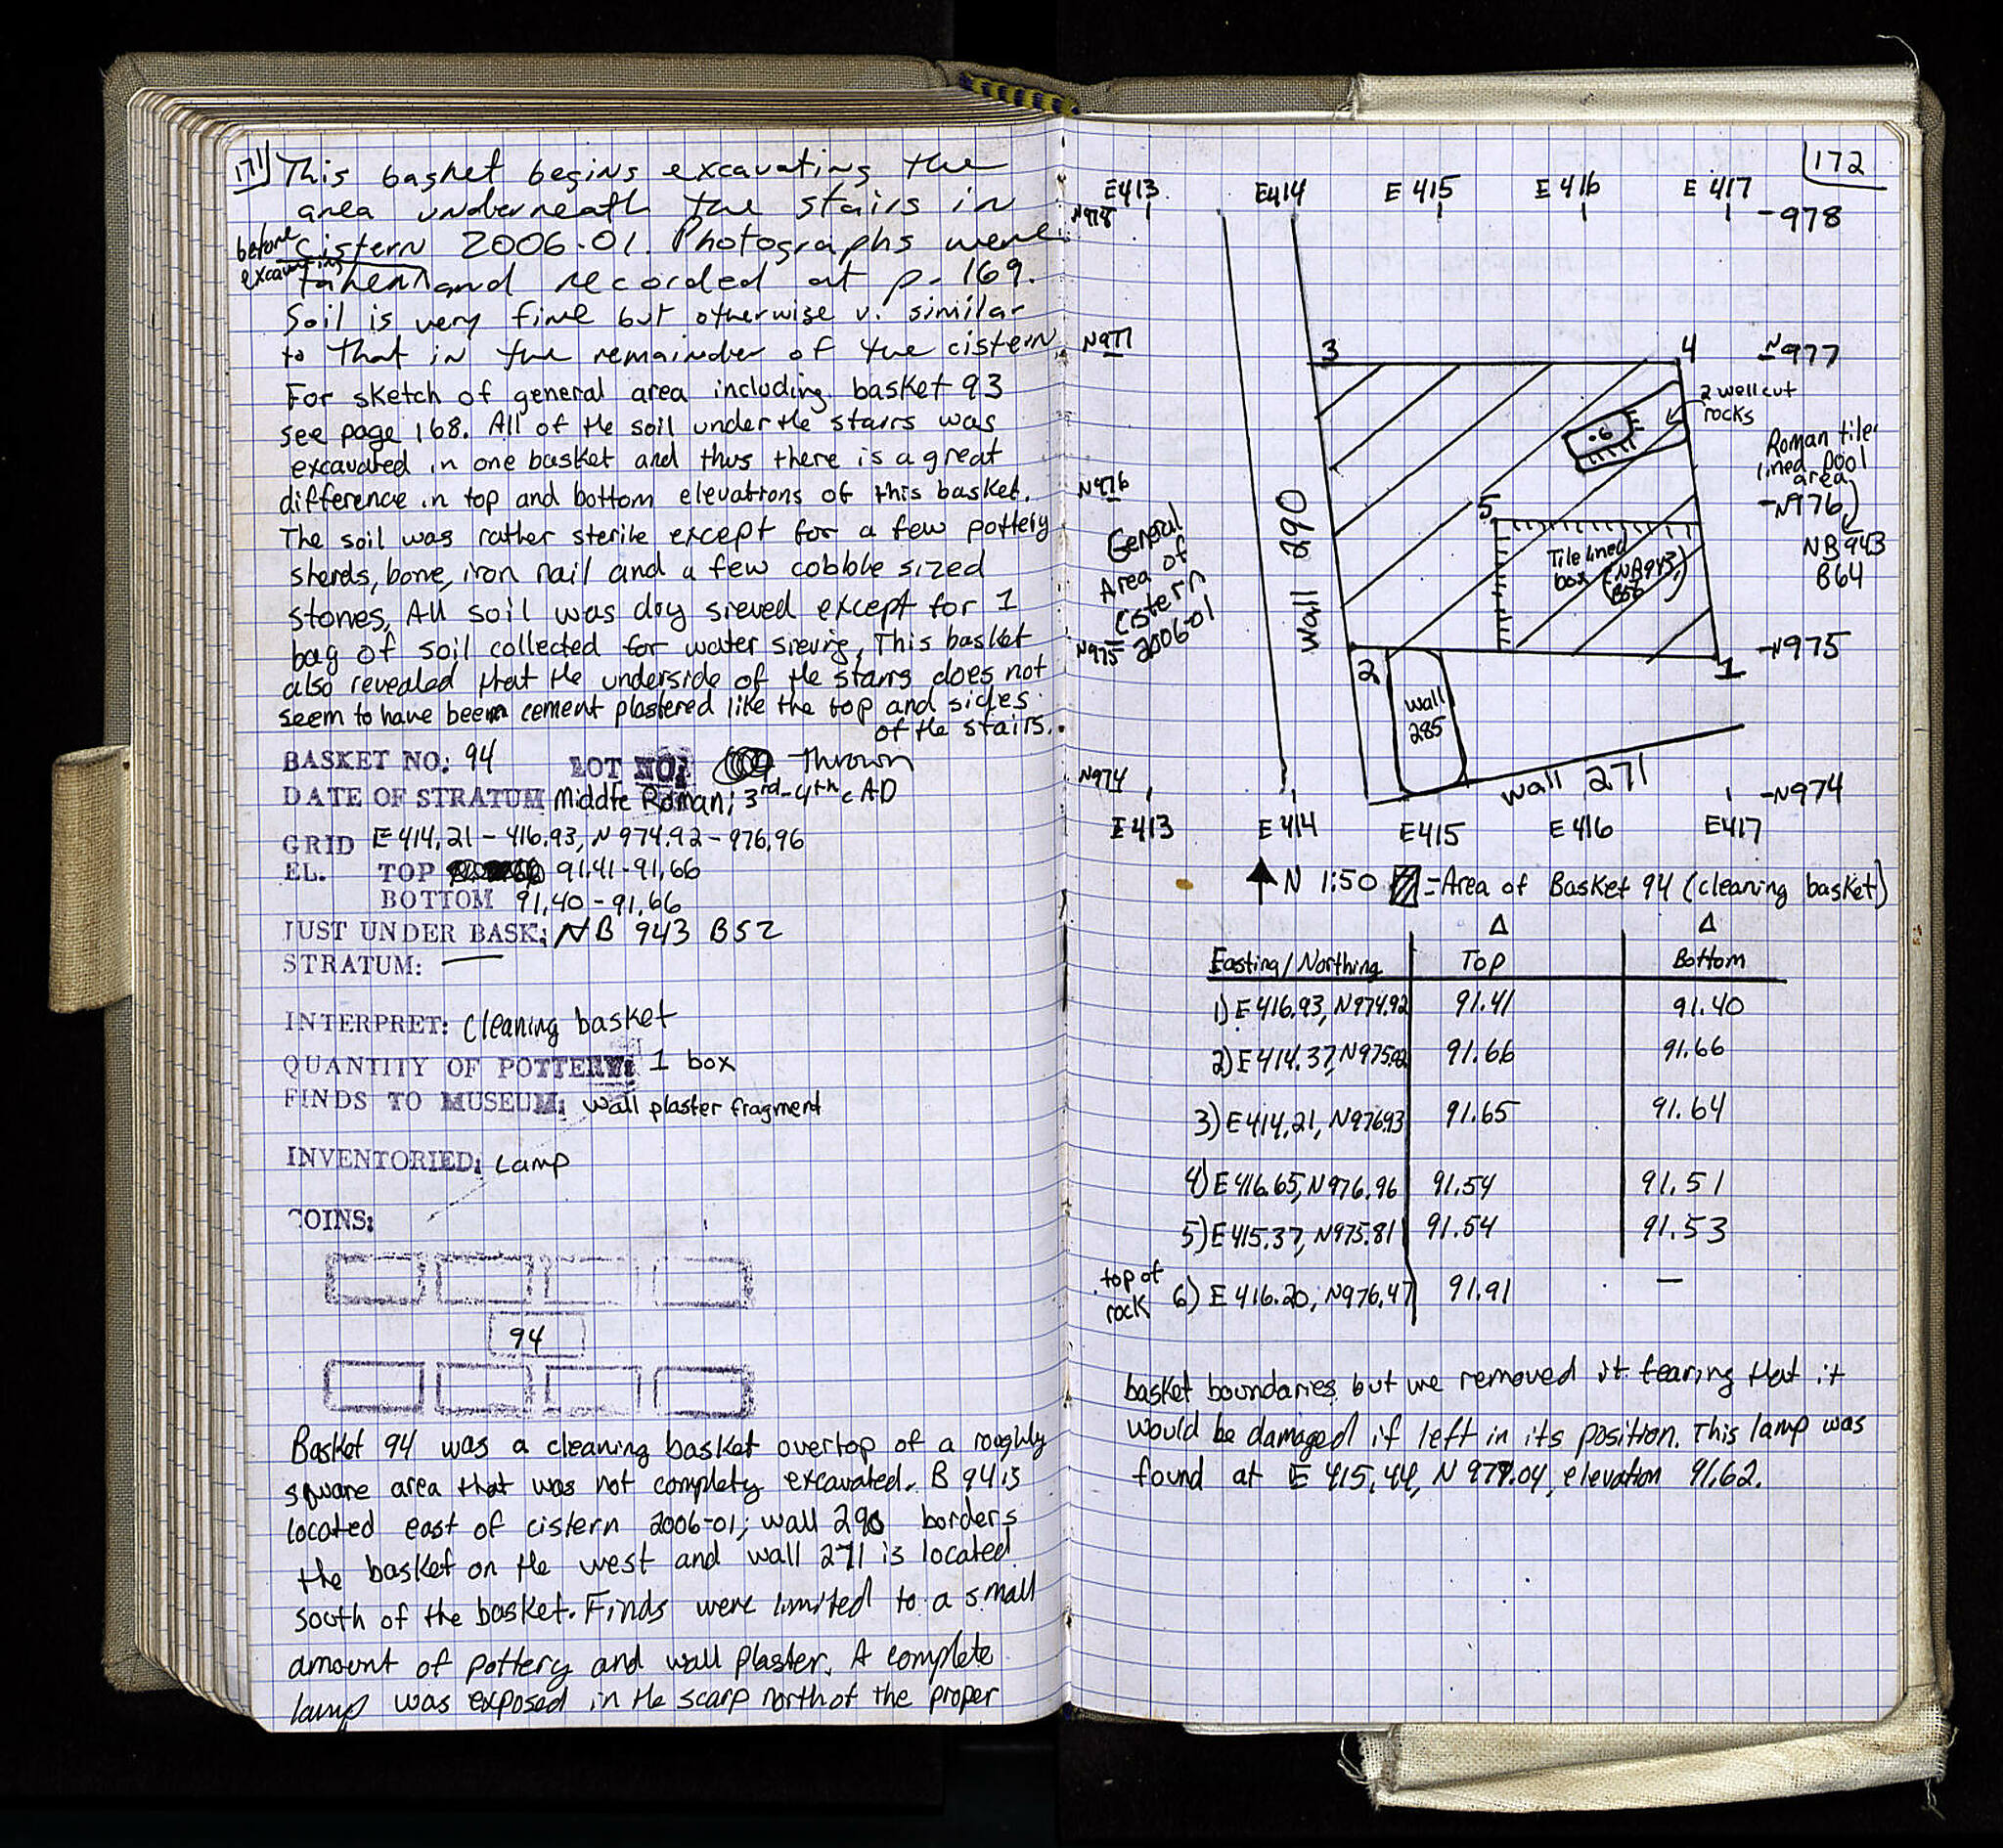 171
This basket begins excavating the
area underneath the stairs in
before cistern 2006-01. Photographs were
excavating taken and recorded at p. 169.
Soil is very fine but otherwise v. similar
to that in the remainder of the cistern
For sketch of general area including basket 93
see page 168. All of the soil under the stairs was
excavated in one basket and thus there is a great
difference in top and bottom elevations of this basket.
The soil was rather sterile except for a few pottery
sherds, bone, iron nail and a few cobble sized
stones, All soil was dry sieved except for 1
bag of soil collected for water sieving, This basket
also revealed that the underside of the stairs does not
seem to have been cement plastered like the top and sides
of the stairs.
BASKET NO: 94 LOT NO: Thrown
DATE OF STRATUM Middle Roman; 3rd-4th c AD
GRID E 414.21 - 416.93, N 974.92 - 976.96
EL. TOP 91.41 - 91.66
BOTTOM 91.40 - 91.66
JUST UNDER BASK: NB 943 B52
STRATUM: —
INTERPRET: Cleaning basket
QUANTITY OF POTTERY: 1 box
FINDS TO MUSEUM: wall plaster fragment
INVENTORIED: Lamp
COINS:
94
Basket 94 was a cleaning basket overtop of a roughly
square area that was not complety excavated. B 94 is
located east of cistern 2006-01; wall 290 borders
the basket on the west and wall 271 is located
south of the basket. Finds were limited to a small
amount of pottery and wall plaster. A complete
lamp was exposed in the scarp north of the proper
172
E413 E414 E 415 E 416 E 417
N978 -978
N977 3 4 N977
2 well cut
rocks
.6
Roman tile
lined pool
area
N976 5 -N976
NB 943
B64
General
Area of
Cistern
2006-01
Wall 290
Tile lined
box (NB943
B56)
N975 -N975
2 1
Wall
285
N974 Wall 271 -N974
E413 E414 E415 E416 E417
N 1:50 =Area of Basket 94 (cleaning basket)
Δ Δ
Easting/Northing Top Bottom
1) E 416.93, N974.92 91.41 91.40
2) E 414.37, N975.02 91.66 91.66
3) E 414.21, N976.93 91.65 91.64
4) E 416.65, N976.96 91.54 91.51
5) E 415.37, N975.81 91.54 91.53
top of
rock 6) E 416.20, N976.47 91.91 —
basket boundaries, but we removed it fearing that it
would be damaged if left in its position. This lamp was
found at E 415.44, N 977.04, elevation 91.62.